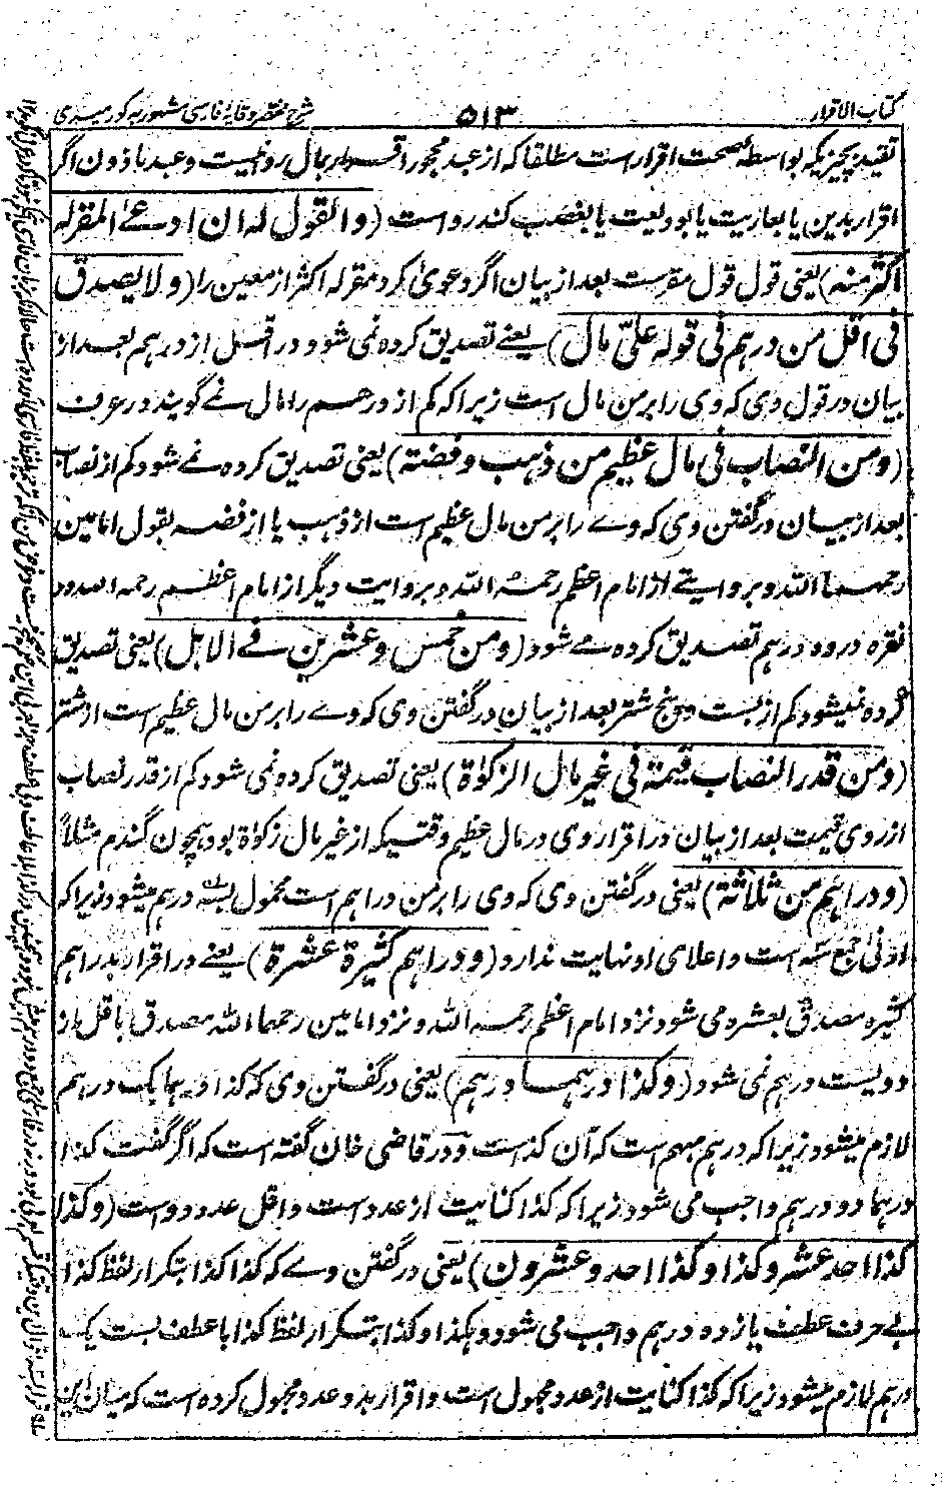 کتاب الاقرار
۵۱۳
شرح مختصر وقایهٔ فارسی مشهور به کور میدی
تقیید بچیزیکه بواسطه صحت اقرار است مطلقا که از عبد محجور اقرار بمال روا نیست و عبد ماذون اگر
اقرار بدین یا بعاریت یا بودیعت یا بغصب کند رواست (والقول له ان ادعی المقر له
اکثر منه) یعنی قول قول مقرست بعد از بیان اگر دعوی کرد مقر له اکثر از معین را (ولا یصدق
فی اقل من درهم فی قوله علیّ مال) یعنے تصدیق کرده نمی شود در اقل از درهم بعد از
بیان در قول وی که وی را بر من مال است زیرا که کم از درهم را مال نمے گویند در عرف
(ومن النصاب فی مال عظیم من ذهب وفضة) یعنی تصدیق کرده نمے شود کم از نصاب
بعد از بیان در گفتن وی که وے را بر من مال عظیم است از ذهب یا از فضه بقول امامین
رحمهما الله و بروایتے از امام اعظم رحمه الله و بروایت دیگر از امام اعظم رحمه الله در
نقره در ده درهم تصدیق کرده مے شود (ومن خمس وعشرین فے الابل) یعنی تصدیق
کرده نمیشود کم از بست و پنج شتر بعد از بیان در گفتن وی که وے را بر من مال عظیم است از شتر
(ومن قدر النصاب قیمة فی غیر مال الزکوٰة) یعنی تصدیق کرده نمی شود کم از قدر نصاب
از روی قیمت بعد از بیان در اقرار وی در مال عظیم وقتیکه از غیر مال زکوٰة بود همچون گندم مثلاً
(ودراهم من ثلاثة) یعنی در گفتن وی که وی را بر من دراهم است محمول بسه درهم میشود زیرا که
ادنی جمع سه است و اعلای او نهایت ندارد (ودراهم کثیرة عشرة) یعنے در اقرار بدراهم
کثیره مصدق بعشره می شود نزد امام اعظم رحمه الله و نزد امامین رحمهما الله مصدق باقل از
دویست درهم نمی شود (وکذا درهما درهم) یعنی در گفتن وی که کذا درهما یک درهم
لازم میشود زیرا که درهم مبهم است که آن کذاست و در قاضی خان گفته است که اگر گفت کذا
درهما دو درهم واجب می شود زیرا که کذا کنایت از عدد است و اقل عدد دو است (وکذا
کذا احد عشر وکذا وکذا احد وعشرون) یعنی در گفتن وے که کذا کذا بتکرار لفظ کذا
بے حرف عطف یازده درهم واجب می شود و بکذا وکذا بتکرار لفظ کذا با عطف بست یک
درهم لازم میشود زیرا که کذا کنایت از عدد مجهول است و اقرار بدو عدد مجهول کرده است که میان این